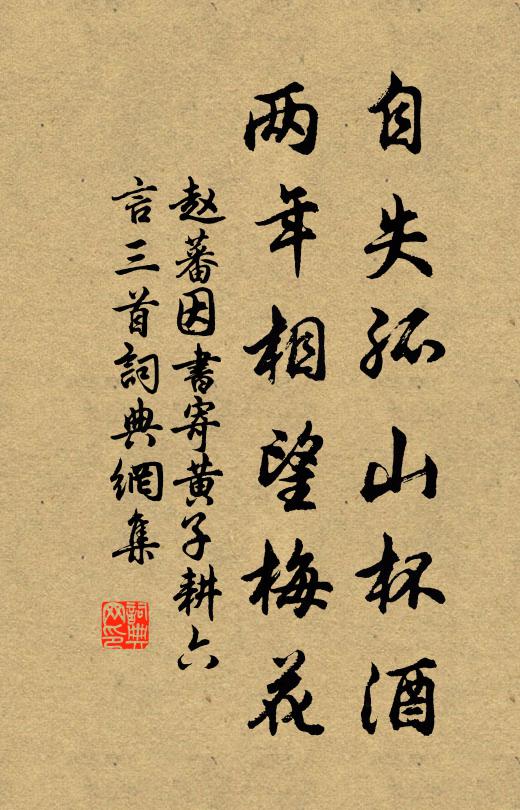 自失孤山杯酒
两年相望梅花
赵蕃因書寄黄子耕六
言三首詞典網集
詞典
网印